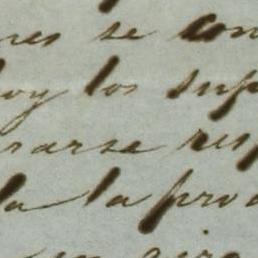 nes se con
hoy los sup
rarse resp
la la prod